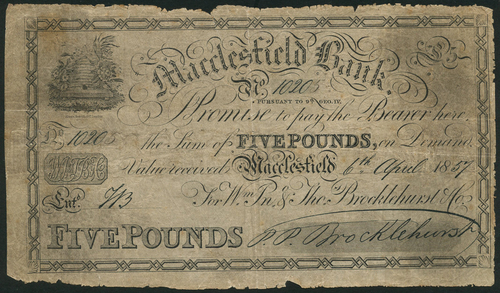 Macclesfield Bank.
No. 10205
PURSUANT TO 9th GEO. IV.
I Promise to pay the Bearer here,
No. 10205 the Sum of FIVE POUNDS, on Demand
Value received Macclesfield 6th April 1857
For Wm. Jn. & Tho. Brocklehurst & Co.
Ent.
FIVE POUNDS Brocklehurst